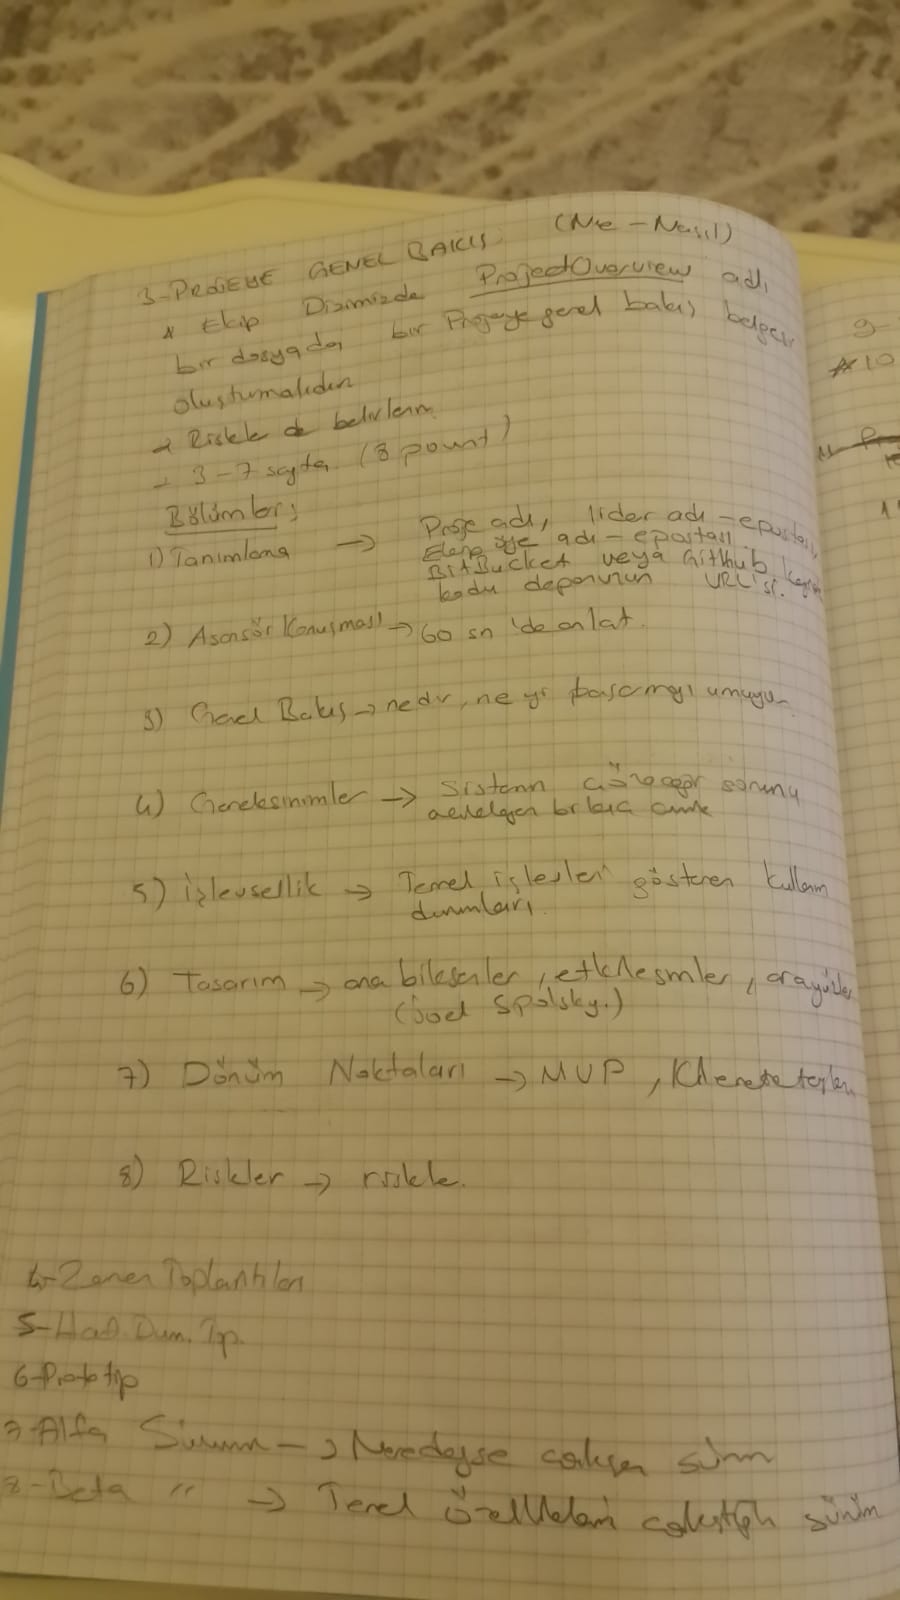 3-PROJEYE GENEL BAKIŞ (Ne - Nasıl)
* Ekip Dizinizde ProjectOverview adlı
bir dosyada bir Projeye genel bakış belgesi
oluşturmalıdır
→ Riskle de belirlenm
- 3-7 sayfa (8 pount)
Bölümler;
1) Tanımlama → Proje adı, lider adı - epostası,
üye adı - epostası
BitBucket veya Github kaynak
kodu deposunun URL'si.
2) Asansör Konuşması → 60 sn 'de anlat.
3) Genel Bakış → nedir, ne yi başarmayı umuyor
4) Gereksinimler → Sistemin çözeceği sorunu
birkaç cümle
5) işlevsellik → Temel işlevleri gösteren kullanım
durumları.
6) Tasarım → ana bileşenler, etkileşimler, arayüzler
(Joel Spolsky.)
7) Dönüm Noktaları → MVP,
8) Riskler → riskle.
4- Zaman Toplantıları
5-Haf. Dum. Tp.
6-Prototip
7-Alfa Sürüm → Neredeyse çalışan sürüm
8-Beta " → Temel özellikleri sürüm
9-
*10